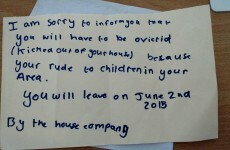 I am sorry to inform you that
you will have to be ovictid
(kicked out of your house) because
your rude to children in your
Area.
you will leave on June 2nd
2015
By the house company